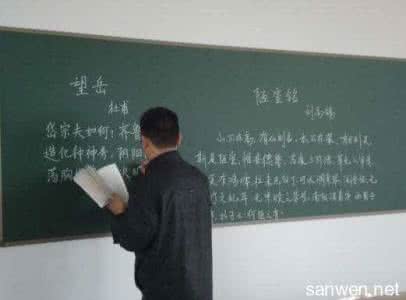 望岳
杜甫
岱宗夫如何：齐鲁
造化钟神秀，阴阳
荡胸
陋室铭
刘禹锡
山不在高，有仙则名。水不在深，有龙则灵
斯是陋室，惟吾德馨。苔痕上阶绿，草色入帘青
谈笑有鸿儒，往来无白丁。可以调素琴，阅金经。无
丝竹之乱耳，无案牍之劳形。南阳诸葛庐，西蜀子
云亭，孔子云：何陋之有？
sanwen.net